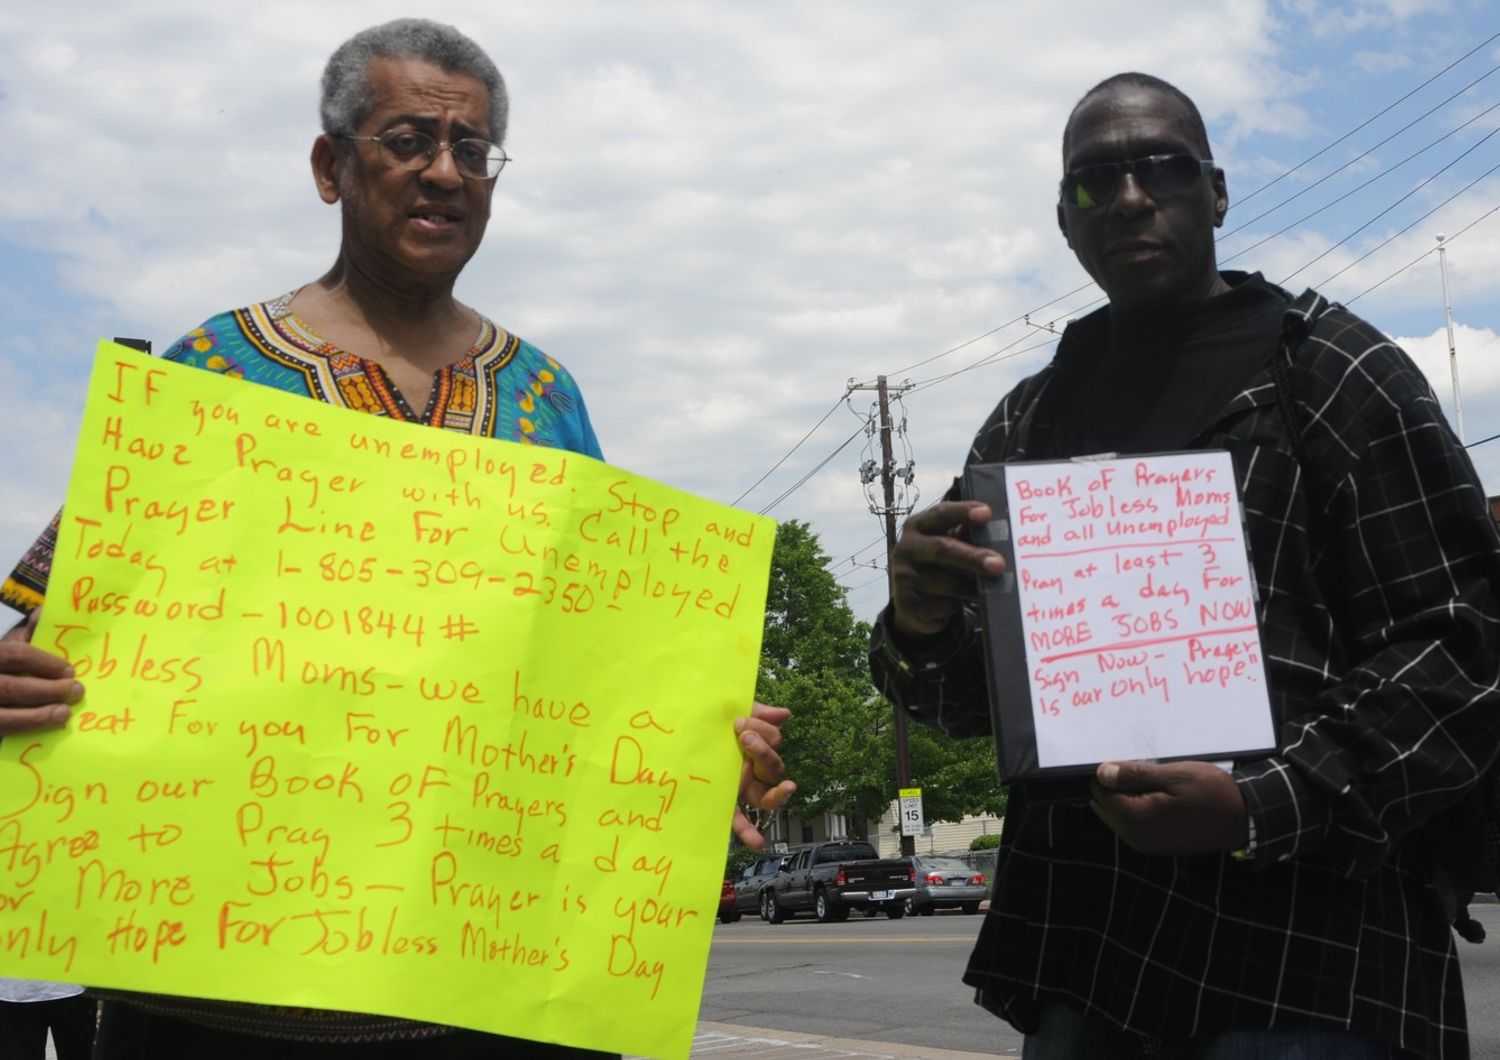 IF you are unemployed. Stop and
Have Prayer with us. Call the
Prayer Line For Unemployed
Today at 1-805-309-2350-
Password - 1001844#
Jobless Moms - we have a
eat For you For Mother's Day-
Sign our Book of Prayers and
Agree to Pray 3 times a day
or More Jobs - Prayer is your
only Hope For Jobless Mother's Day
Book of Prayers
For Jobless Moms
and all unemployed
Pray at least 3
times a day For
MORE JOBS NOW
Sign Now- Prayer
is our only hope."
SCHOOL
SPEED
LIMIT
15